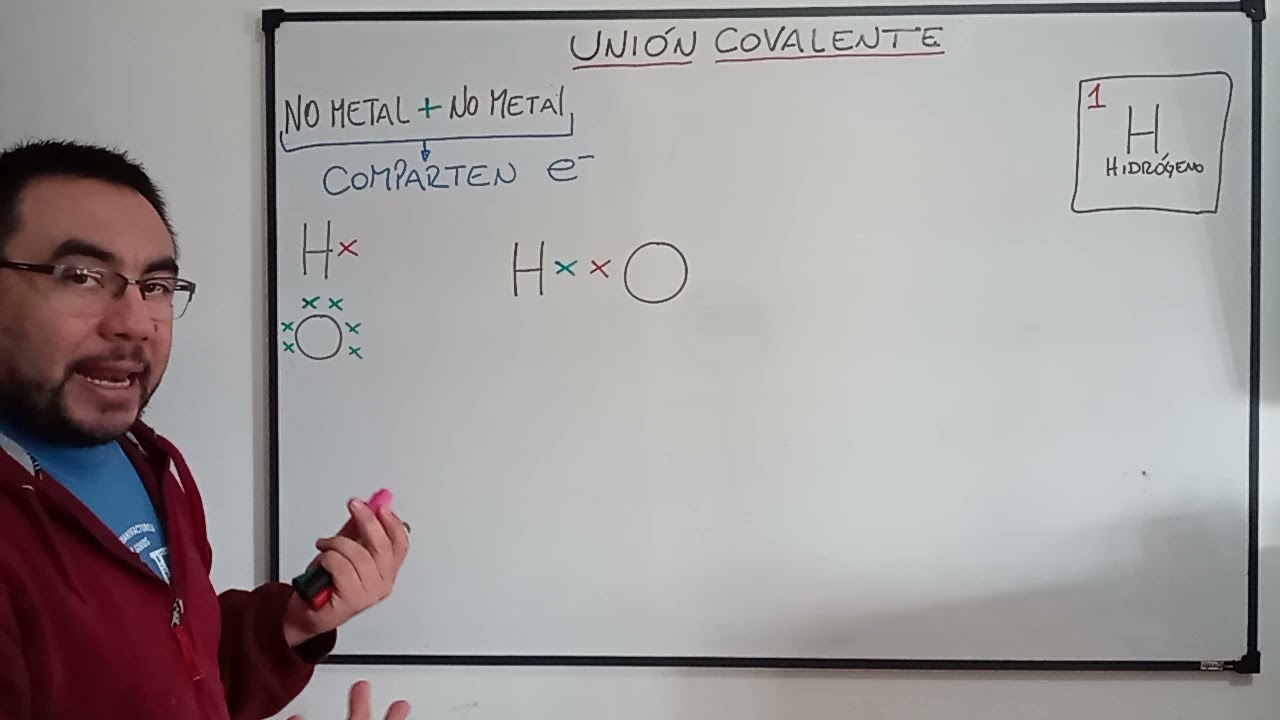 UNIÓN COVALENTE
NO METAL + NO METAL
COMPARTEN e⁻
1
H
HIDRÓGENO
H×
×× ×× O ××
H×× O